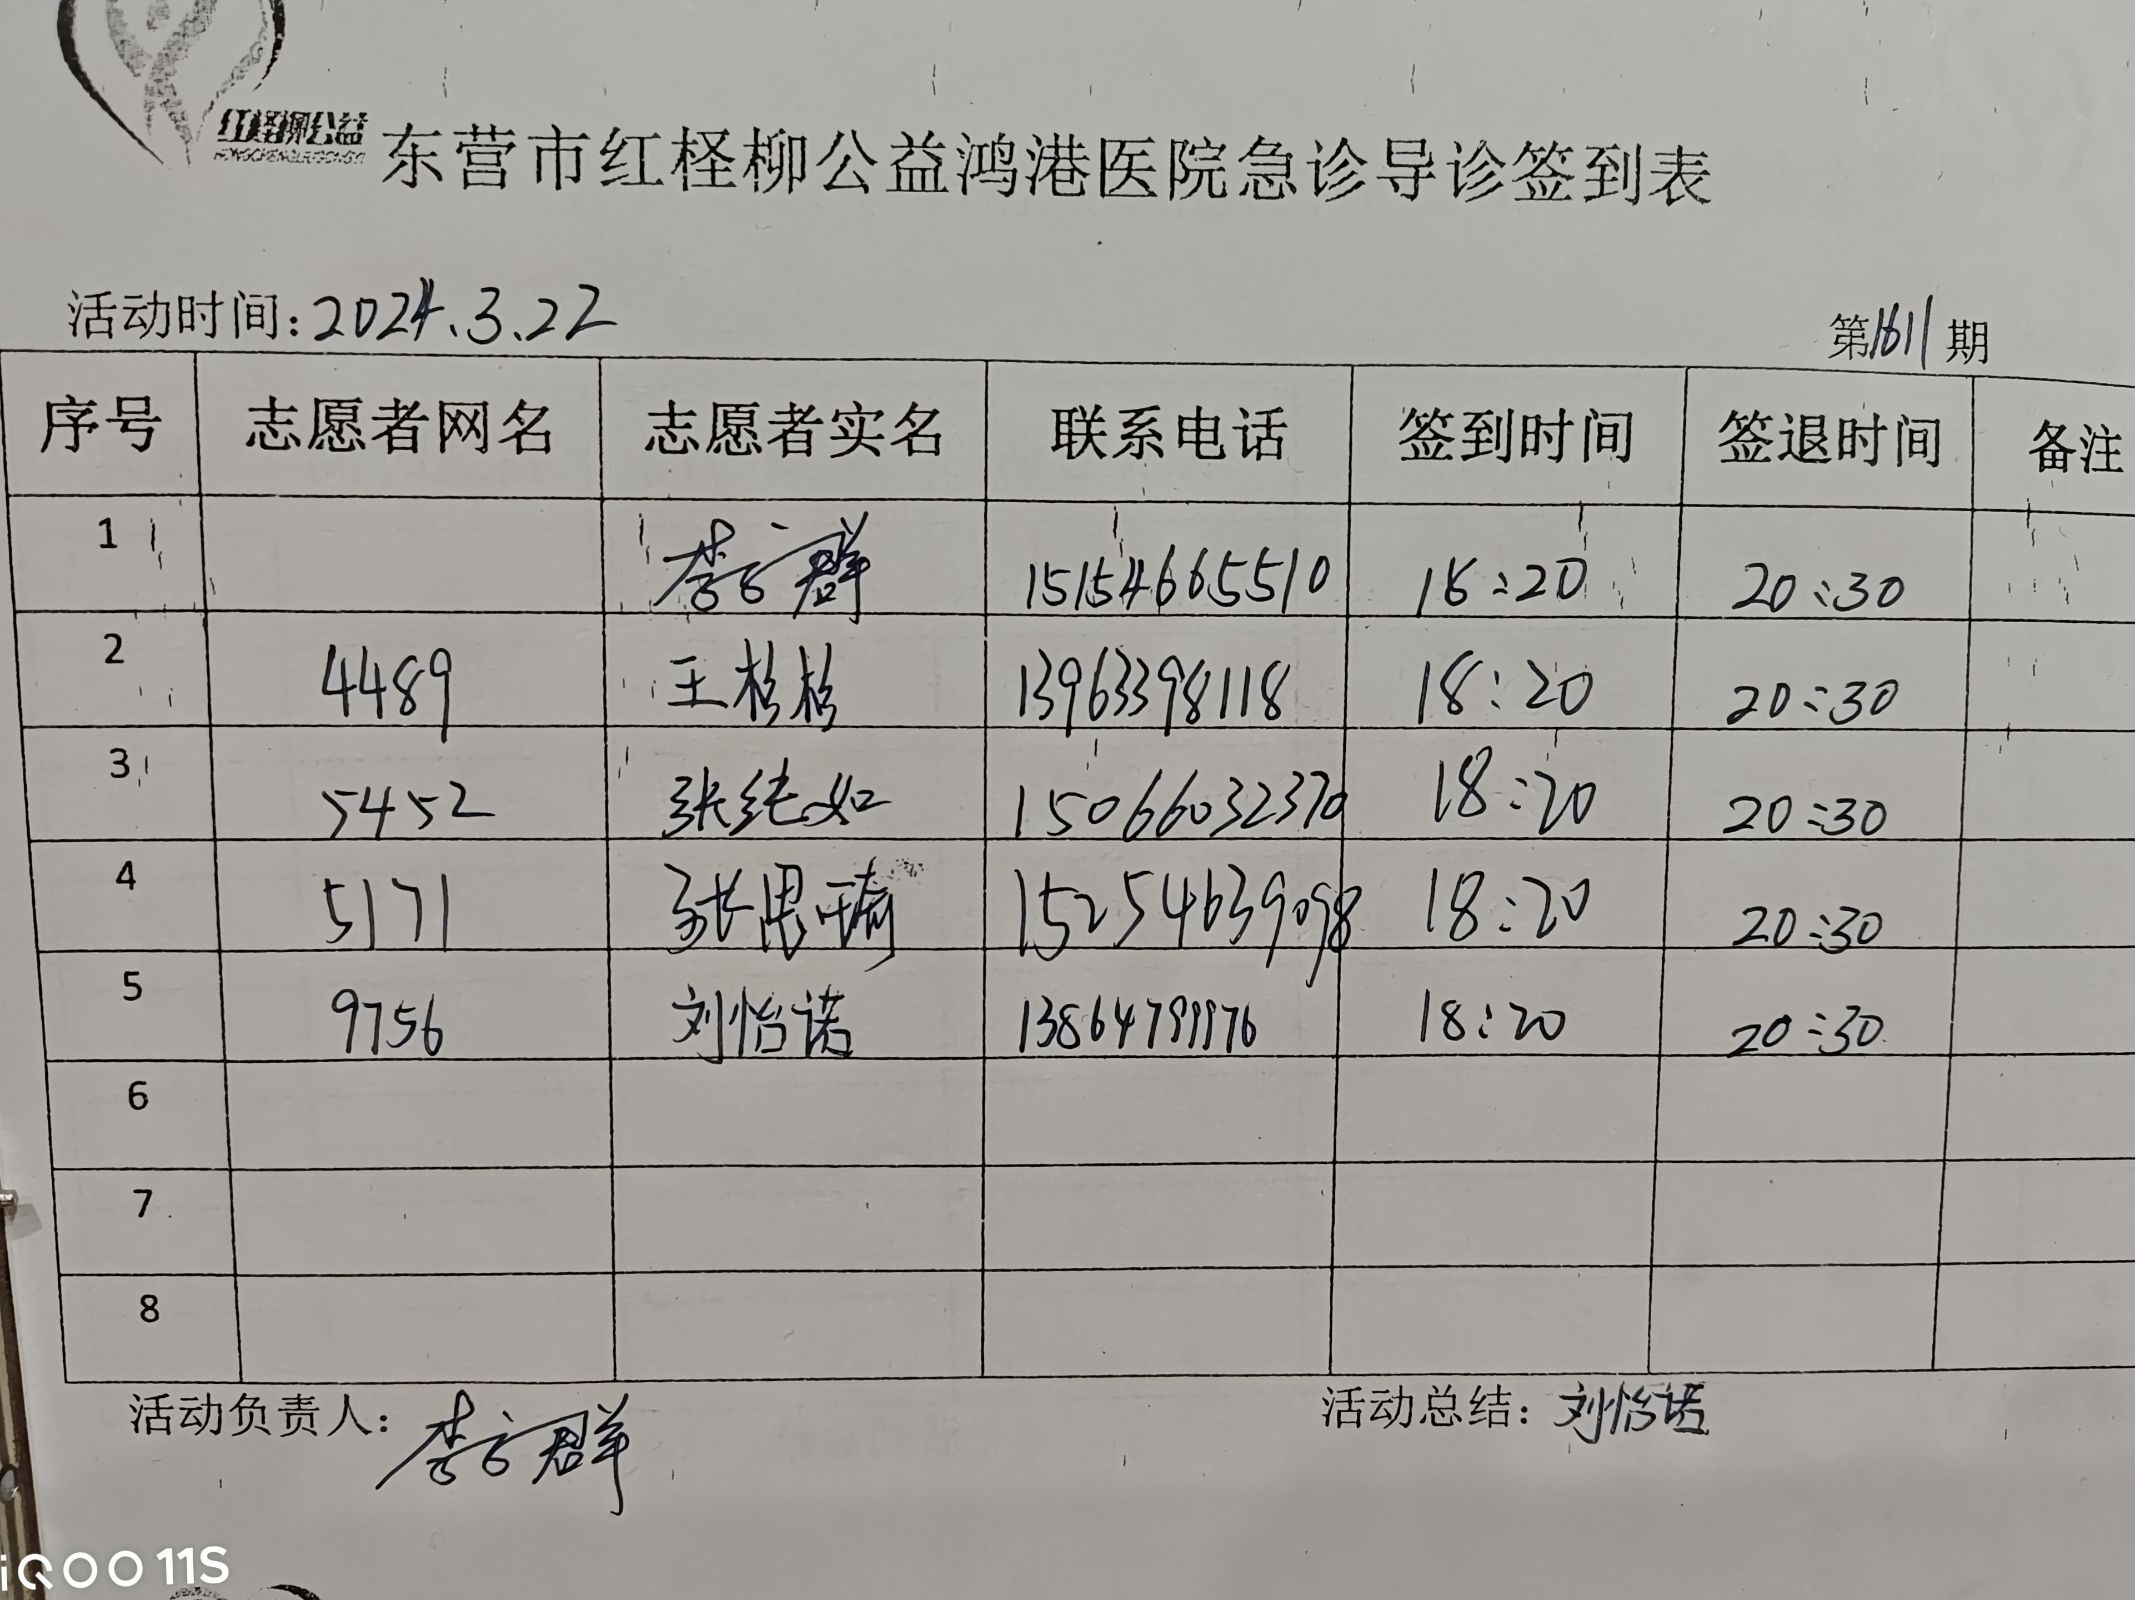 红柽柳公益
东营市红柽柳公益鸿港医院急诊导诊签到表
活动时间:2024.3.22
第1611期
序号 志愿者网名 志愿者实名 联系电话 签到时间 签退时间 备注
1 李方群 15154665510 18:20 20:30
2 4489 王杉杉 13963398118 18:20 20:30
3 5452 张纯如 15066032370 18:20 20:30
4 5171 张恩琦 15254639098 18:20 20:30
5 9756 刘怡诺 13864799976 18:20 20:30
6
7
8
活动负责人: 李方群 活动总结: 刘怡诺
iQOO 11S